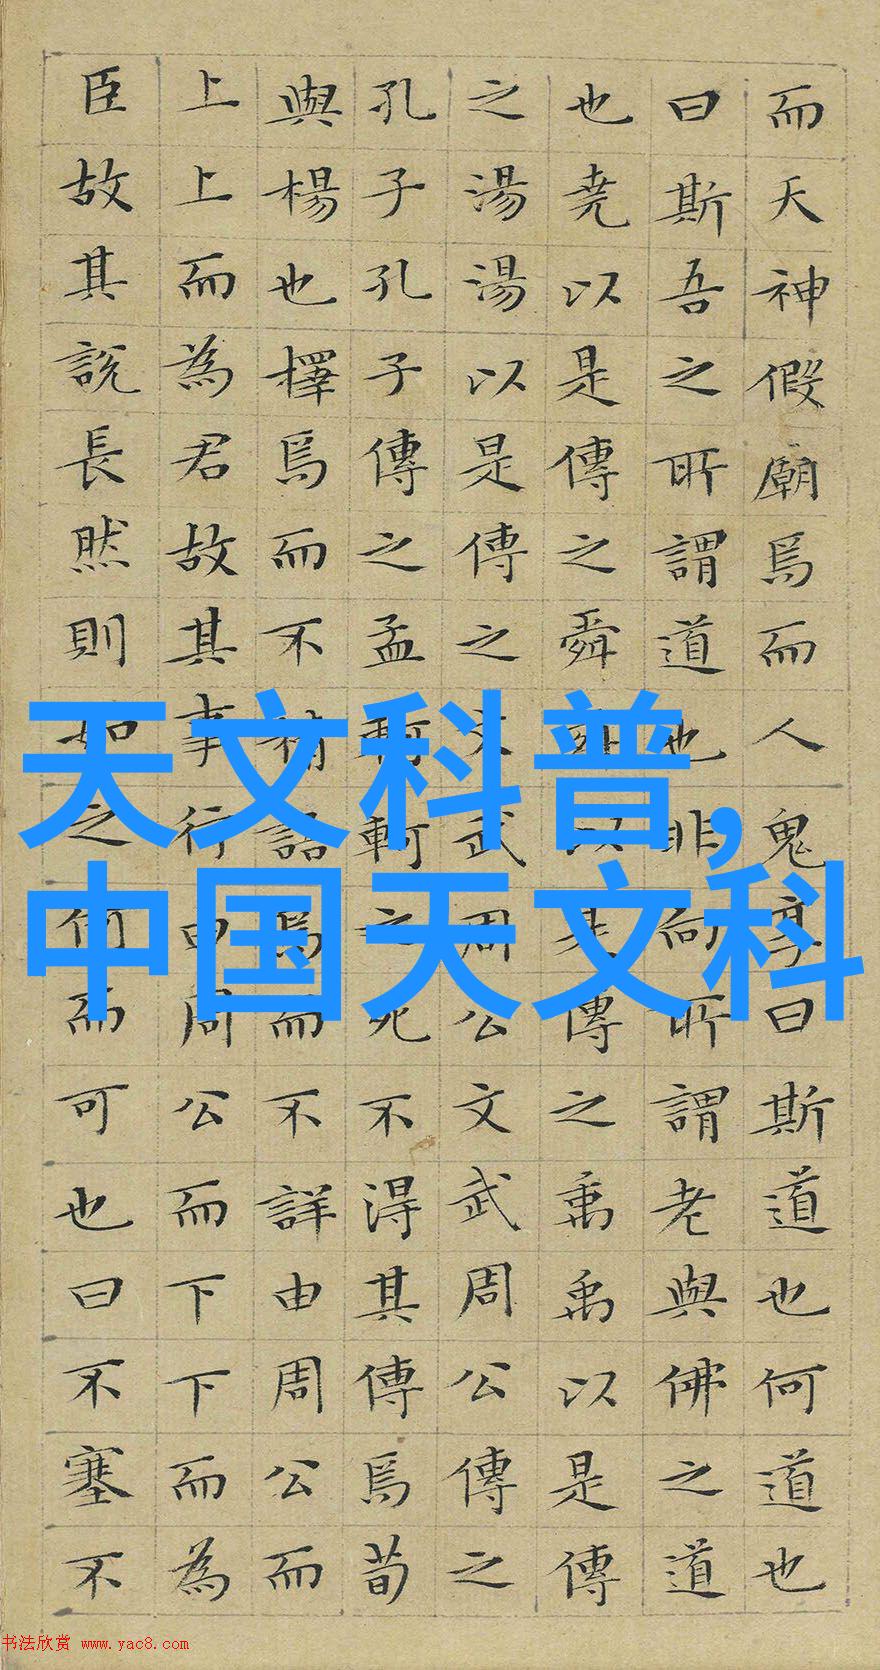 而天神假廟焉而人鬼享曰斯道也何道也
曰斯吾之所謂道也非向所謂老與佛之道
也堯以是傳之舜舜以是傳之禹禹以是傳
之湯湯以是傳之文武周公文武周公傳之
孔子孔子傳之孟軻軻之死不得其傳焉荀
與楊也擇焉而不精語焉而不詳由周公而
上上而為君故其事行由周公而下下而為
臣故其說長然則如之何而可也曰不塞不
天文科普,
中国天文科
书法欣赏 www.yac8.com